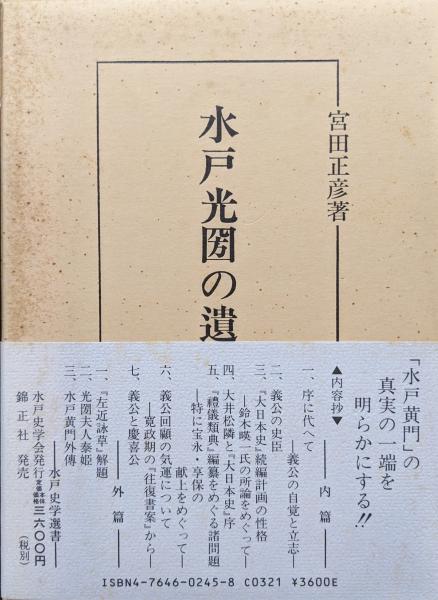 宮田正彦著
水戸光圀の遺
「水戸黄門」の
真実の一端を
明らかにする!!
▲内容抄▼
―内篇―
一、序に代へて
―義公の自覚と立志―
二、義公の史臣
三、『大日本史』続編計画の性格
―鈴木暎一氏の所論をめぐって―
四、大井松隣と『大日本史』序
五、『禮儀類典』編纂をめぐる諸問題
―特に宝永・享保の
献上をめぐって―
六、義公回顧の気運について
―寛政期の『往復書案』から―
七、義公と慶喜公
―外篇―
一、『左近詠草』解題
二、光圀夫人泰姫
三、水戸黄門外傳
―水戸史学選書―
水戸史学会発行 定価 本体価格 三六〇〇円
錦正社 発売 (税別)
ISBN4-7646-0245-8 C0321 ¥3600E